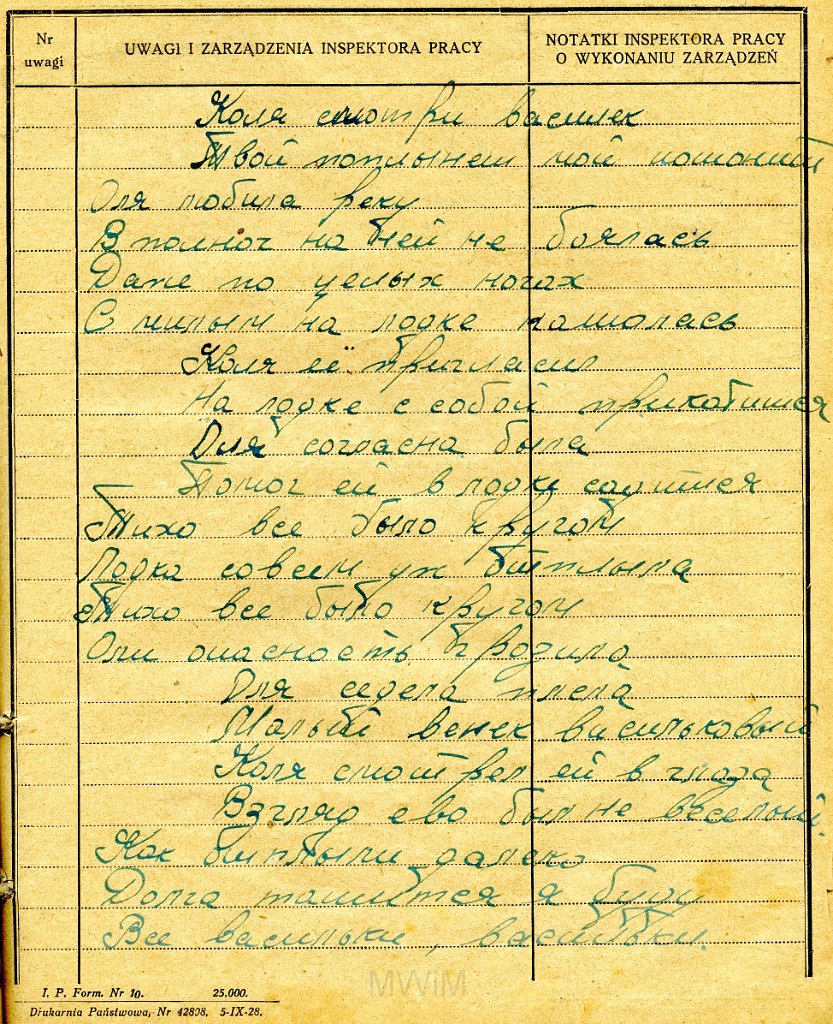 Nr
uwagi
UWAGI I ZARZĄDZENIA INSPEKTORA PRACY
NOTATKI INSPEKTORA PRACY
O WYKONANIU ZARZĄDZEŃ
Коля смотри василек
Твой поплынет мой
Оля любила реку
В полноч на ней не боялась
Даже по целых ночах
С милым на лодке
Коля её пригласил
На лодке с собой
Оля согласна была
Помог ей в лодке садится
Тихо все было кругом
Лодка совсем уж отплыла
Тихо все было кругом
Оли опасность грозила
Оля седела плела
Малый венек васильковый
Коля смотрел ей в глаза
Взгляд ево был не веселый.
Как отплыли далеко
Долга я буду
Все васильки, васильки.
MWiM
I. P. Form. Nr 10. 25.000.
Drukarnia Państwowa, Nr 42808. 5-IX-28.